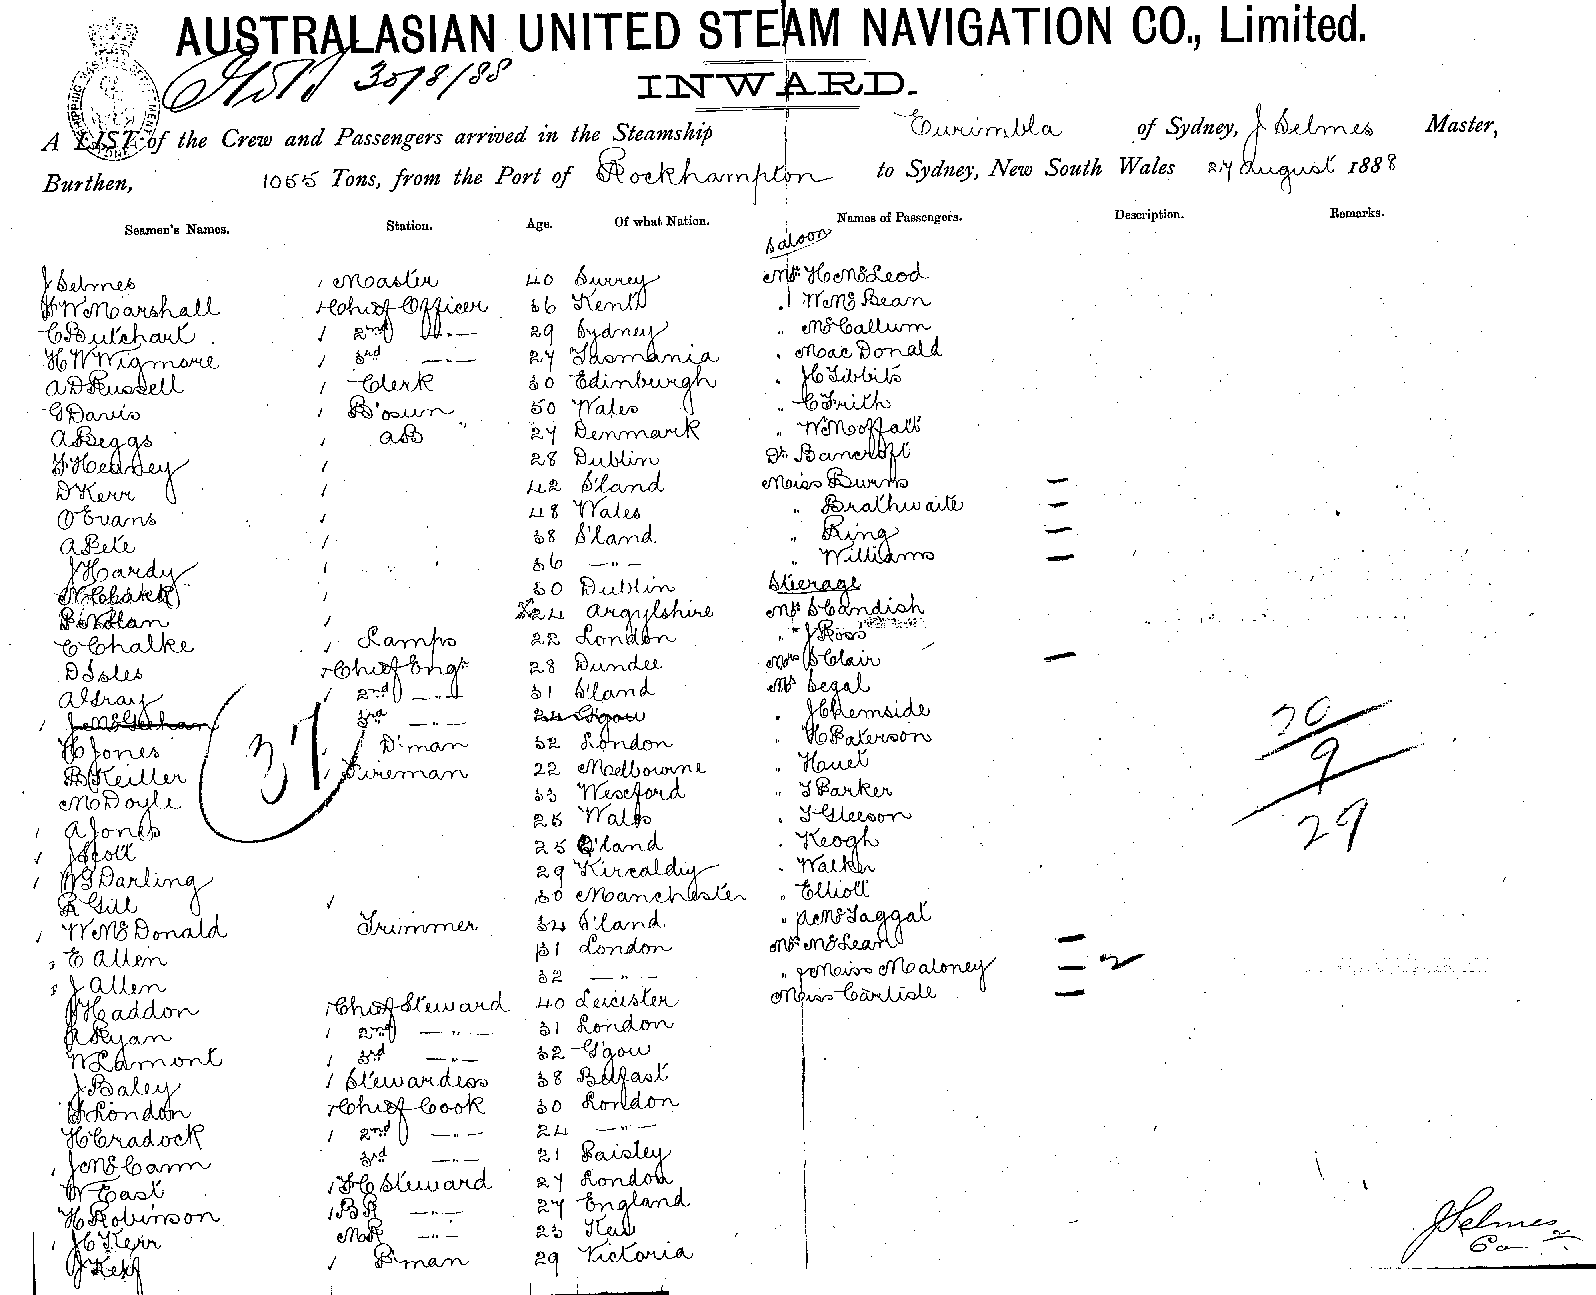 AUSTRALASIAN UNITED STEAM NAVIGATION CO., Limited.
30/8/88
INWARD.
A LIST of the Crew and Passengers arrived in the Steamship Eurimbla of Sydney, J Selmes Master,
Burthen, 1055 Tons, from the Port of Rockhampton to Sydney, New South Wales 27 August 1888
Seamen's Names. Station. Age. Of what Nation. Names of Passengers. Description. Remarks.
Saloon
J Selmes Master 40 Surrey Mr H McLeod
W Marshall Chief Officer 36 Kent " W McBean
C Butchart 2nd —"— 29 Sydney " McCallum
H W Wigmore 3rd —"— 27 Tasmania " MacDonald
A D Russell Clerk 30 Edinburgh " J C Tibbits
G Davis B'osun 50 Wales " C Frith
A Beggs AB 27 Denmark " W Moffatt
Hearney 28 Dublin Dr Bancroft
D Kerr 42 S'land Miss Burns —
O Evans 48 Wales " Brathwaite —
A Pete 38 S'land " Ring —
J Hardy 36 —"— " Williams —
30 Dublin Steerage
P Nolan 24 Argylshire Mr S Candish
C Chalke Lamps 22 London " J Ross
D Isles Chief Engr 28 Dundee Mrs S Clair —
A Gray 2nd —"— 31 S'land Mr Segal
3rd —"— 24 G'gow " J Chemside
H Jones D'man 32 London " H Paterson
B Keiller Fireman 22 Melbourne " Huet
M Doyle 33 Wexford " T Parker
A Jones 25 Wales " T Gleeson
J Scott 25 Q'land " Keogh
W G Darling 29 Kircaldy " Walker
R Gill 30 Manchester " Elliott
W McDonald Trimmer 34 S'land " A McTaggat
E Allen 31 London Mrs McLean —
J Allen 32 —"— " & Miss Maloney — 2
J Haddon Chief Steward 40 Leicester Miss Carlisle —
A Ryan 2nd —"— 31 London
W Lamont 3rd —"— 32 G'gow
J Baley Stewardess 38 Belfast
London Chief Cook 30 London
H Cradock 2nd —"— 24 —"—
J McCann 3rd —"— 21 Paisley
W East F C Steward 27 London
H Robinson BR —"— 27 England
J C Kerr MR —"— 23 Kew
J Kerr P'man 29 Victoria
37
20
9
29
J Selmes